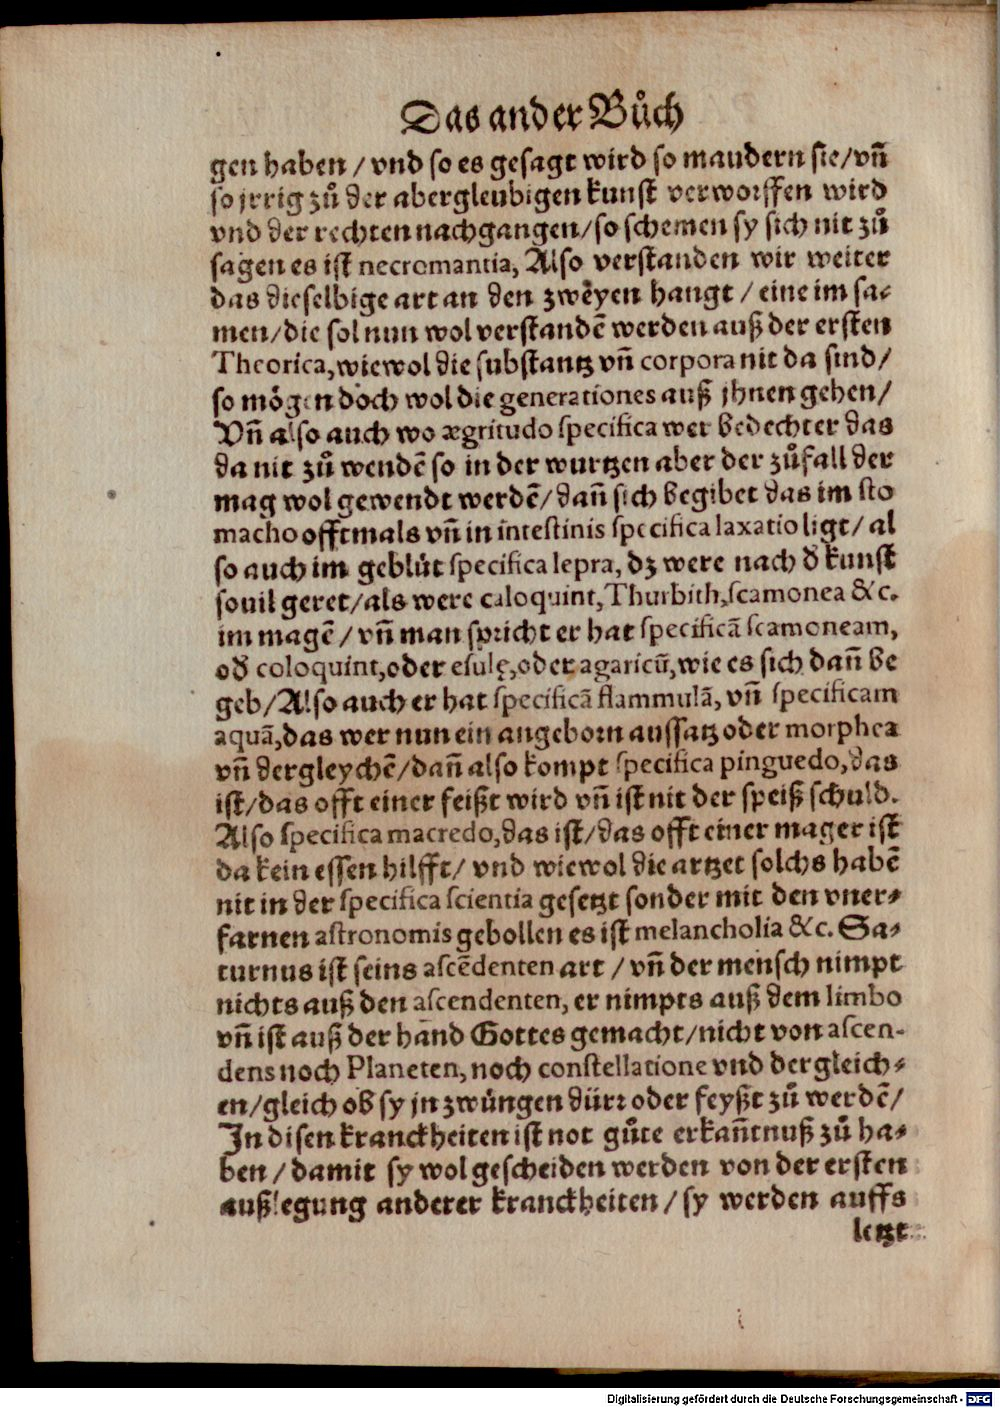 Das ander Bůch
gen haben / vnd so es gesagt wird so maudern sie/vñ
so jrrig zů der abergleubigen kunst verworffen wird
vnd der rechten nachgangen/so schemen sy sich nit zů
sagen es ist necromantia, Also verstanden wir weiter
das dieselbige art an den zweyen hangt / eine im sa⸗
men/die sol nun wol verstandē werden auß der ersten
Theorica, wiewol die substantz vñ corpora nit da sind/
so mögen doch wol die generationes auß jhnen gehen/
Vñ also auch wo ægritudo specifica wer bedechter das
da nit zů wendē so in der wurtzen aber der zůfall der
mag wol gewendt werdē/dañ sich begibet das im sto
macho offtmals vñ in intestinis specifica laxatio ligt/ al
so auch im geblůt specifica lepra, dz were nach d̄ kunst
souil geret/als were coloquint, Thurbith, scamonea &c.
im magē / vñ man spricht er hat specificā scamoneam,
od̄ coloquint, oder esulę, oder agaricū, wie es sich dañ be
geb/Also auch er hat specificā flammulā, vñ specificam
aquā, das wer nun ein angeborn aussatz oder morphea
vñ dergleychē/dañ also kompt specifica pinguedo, das
ist/das offt einer feißt wird vñ ist nit der speiß schuld.
Also specifica macredo, das ist/das offt einer mager ist
da kein essen hilfft/ vnd wiewol die artzet solchs habē
nit in der specifica scientia gesetzt sonder mit den vner⸗
farnen astronomis gebollen es ist melancholia &c. Sa⸗
turnus ist seins ascēdenten art / vñ der mensch nimpt
nichts auß den ascendenten, er nimpts auß dem limbo
vñ ist auß der hand Gottes gemacht/nicht von ascen-
dens noch Planeten, noch constellatione vnd dergleich⸗
en/gleich ob sy jn zwůngen dürr oder feyßt zů werdē/
In disen kranckheiten ist not gůte erkañtnuß zů ha⸗
ben / damit sy wol gescheiden werden von der ersten
außlegung anderer kranckheiten / sy werden auffs
letzt
Digitalisierung gefördert durch die Deutsche Forschungsgemeinschaft - DFG